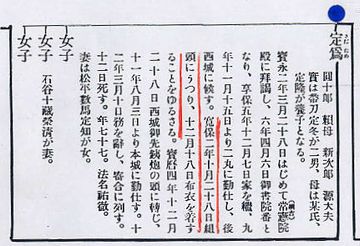 定爲
さだため
圓十郎 頼母 新次郎 源大夫
實は帶刀定冬が二男、母は某氏、
定隆が養子となる。
寳永二年三月二十八日はじめて常憲院
(綱吉)
殿に拜謁し、六年四月六日御書院番と
なり、享保五年十二月七日家を繼、九
年十一月十五日より二丸に勤仕し、後
西城に候す。寛保二年十月二十八日組
頭にうつり、十二月十八日布衣を着す
ることをゆるさる。寳曆四年十二月
二十八日西城御先鐵炮の頭に轉じ、
十一年八月三日より本城に勤仕す。十
二年三月十日務を辭し、寄合に列す。
十二日死す。年七十七。法名祐徹。
妻は松平數馬定知が女。
女子
石谷十藏榮淸が妻。
女子
女子